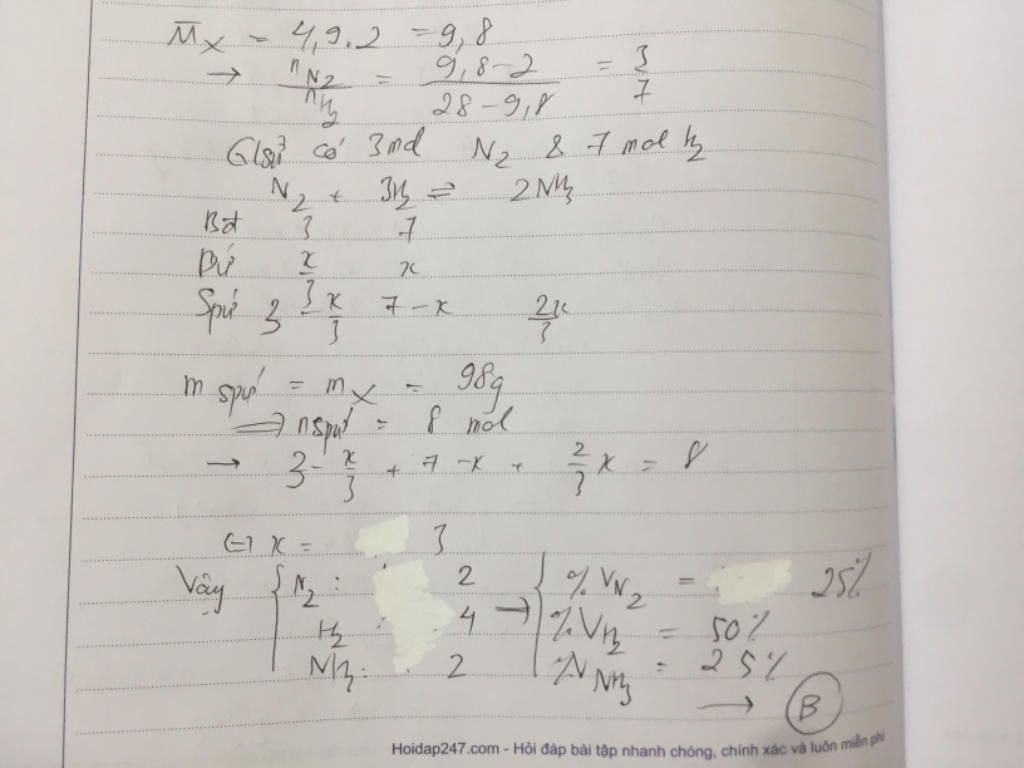 M̅x = 4,9.2 = 9,8
→ nN₂/nH₂ = (9,8-2)/(28-9,8) = 3/7
Gsử có 3mol N₂ & 7 mol H₂
N₂ + 3H₂ ⇌ 2NH₃
Bđ 3 7
Pứ x/3 x
Spứ 3 - x/3 7-x 2x/3
m spứ = mx = 98g
⇒ nspứ = 8 mol
→ 3 - x/3 + 7 - x + 2/3 x = 8
⇔ x = 3
Vậy { N₂ : 2 → { %VN₂ = 25%
H₂ : 4 %VH₂ = 50%
NH₃ : 2 %VNH₃ = 25%
→ B
Hoidap247.com - Hỏi đáp bài tập nhanh chóng, chính xác và luôn miễn phí